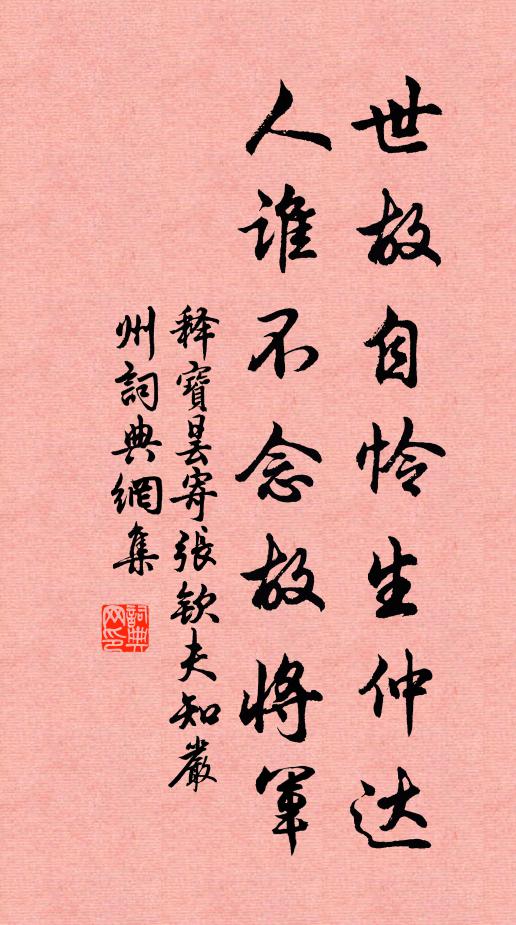 世故自怜生仲达
人谁不念故将军
释寶昙寄張欽夫知嚴
州詞典網集
詞典网印